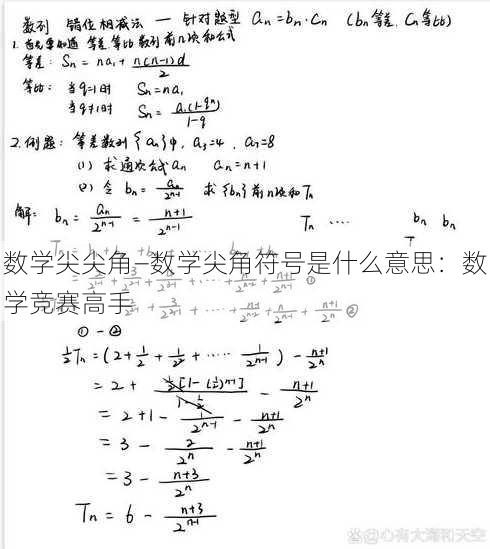 数列 错位相减法 — 针对题型 an = bn·Cn (bn等差, Cn等比)
1. 首先要知道 等差、等比数列前n项和公式
等差: Sn = na1 + n(n-1)d/2
等比: 当q=1时 Sn = na1
当q≠1时 Sn = a1(1-q^n)/1-q
2. 例题: 等差数列{an}中, a3=4, a7=8
(1) 求通项公式an an = n+1
(2) 令 bn = an/2^(n-1) 求{bn}前n项和Tn
解: bn = an/2^(n-1) = n+1/2^(n-1) Tn ···· bn bn
数学尖尖角—数学尖角符号是什么意思：数
学竞赛高手
① - ②
1/2 Tn = (2 + 1/2 + 1/2² + ···· 1/2^(n-1)) - n+1/2^n
= 2 + 1/2[1-(1/2)^(n-1)]/1-1/2 - n+1/2^n
= 2 + 1 - 1/2^(n-1) - n+1/2^n
= 3 - 2/2^n - n+1/2^n
= 3 - n+3/2^n
Tn = 6 - n+3/2^(n-1)
知乎 @心有大海和天空